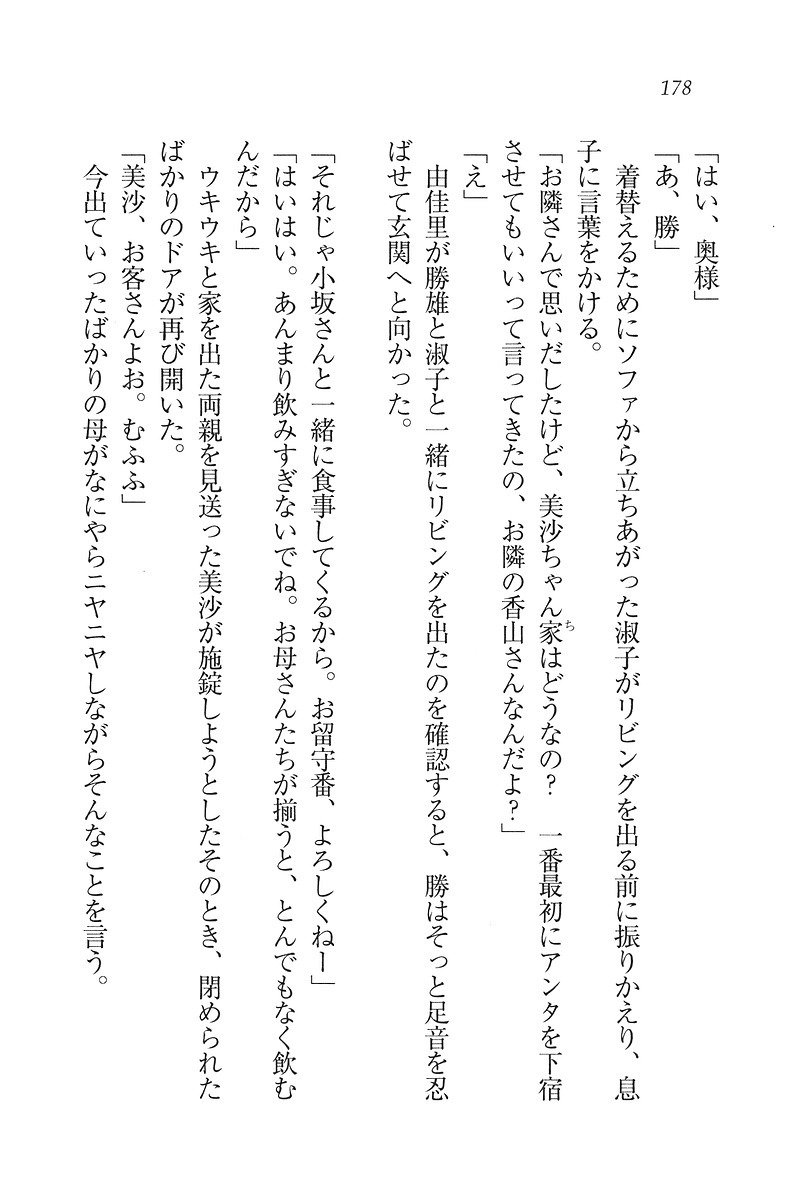 178
「はい、奥様」
「あ、勝」
着替えるためにソファから立ちあがった淑子がリビングを出る前に振りかえり、息
子に言葉をかける。
「お隣さんで思いだしたけど、美沙ちゃん家はどうなの？　一番最初にアンタを下宿
させてもいいって言ってきたの、お隣の香山さんなんだよ？」
「え」
由佳里が勝雄と淑子と一緒にリビングを出たのを確認すると、勝はそっと足音を忍
ばせて玄関へと向かった。
「それじゃ小坂さんと一緒に食事してくるから。お留守番、よろしくねー」
「はいはい。あんまり飲みすぎないでね。お母さんたちが揃うと、とんでもなく飲む
んだから」
ウキウキと家を出た両親を見送った美沙が施錠しようとしたそのとき、閉められた
ばかりのドアが再び開いた。
「美沙、お客さんよお。むふふ」
今出ていったばかりの母がなにやらニヤニヤしながらそんなことを言う。
ち